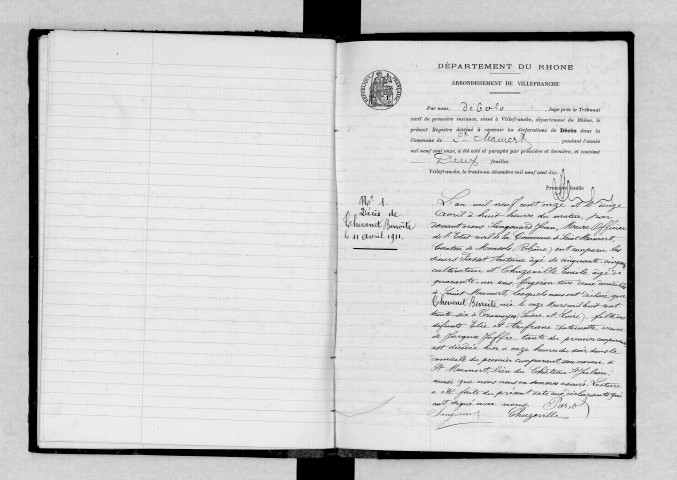 DÉPARTEMENT DU RHONE
ARRONDISSEMENT DE VILLEFRANCHE
RÉPUBLIQUE FRANÇAISE
Par nous, Juge près le Tribunal
civil de première instance, séant à Villefranche, département du Rhône, le
présent Registre destiné à recevoir les déclarations de Décès dans la
Commune de St Mamert pendant l'année
mil neuf cent onze, a été coté et paraphé par première et dernière, et contient
Deux feuilles.
Villefranche, le trente-un décembre mil neuf cent dix.
Première feuille
N° 1.
Décès de
Thevenet Benoîte
le 11 avril 1911.
L'an mil neuf cent onze et le onze
avril à huit heures du matin, par
devant nous Jean, Maire Officier
de l'Etat civil de la Commune de Saint Mamert,
Canton de Monsols, (Rhône) ont comparu les
sieurs Antoine âgé de cinquante cinq ans
cultivateur et Chuzeville âgé de
quarante un ans, tous deux domiciliés
à Saint Mamert, lesquels nous ont déclaré que
Thevenet Benoîte née le onze Mars mil huit cent
trente six à Tramayes (Saône et Loire), fille des
défunts et Antoinette, veuve
de Jacques, tante du premier comparant
est décédée hier à onze heures du soir dans le
domicile du premier comparant son neveu à
St Mamert, lieu du Château
ainsi que nous nous en sommes assuré. Lecture
a été faite du présent acte aux déclarants qui
ont signé avec nous.
Chuzeville